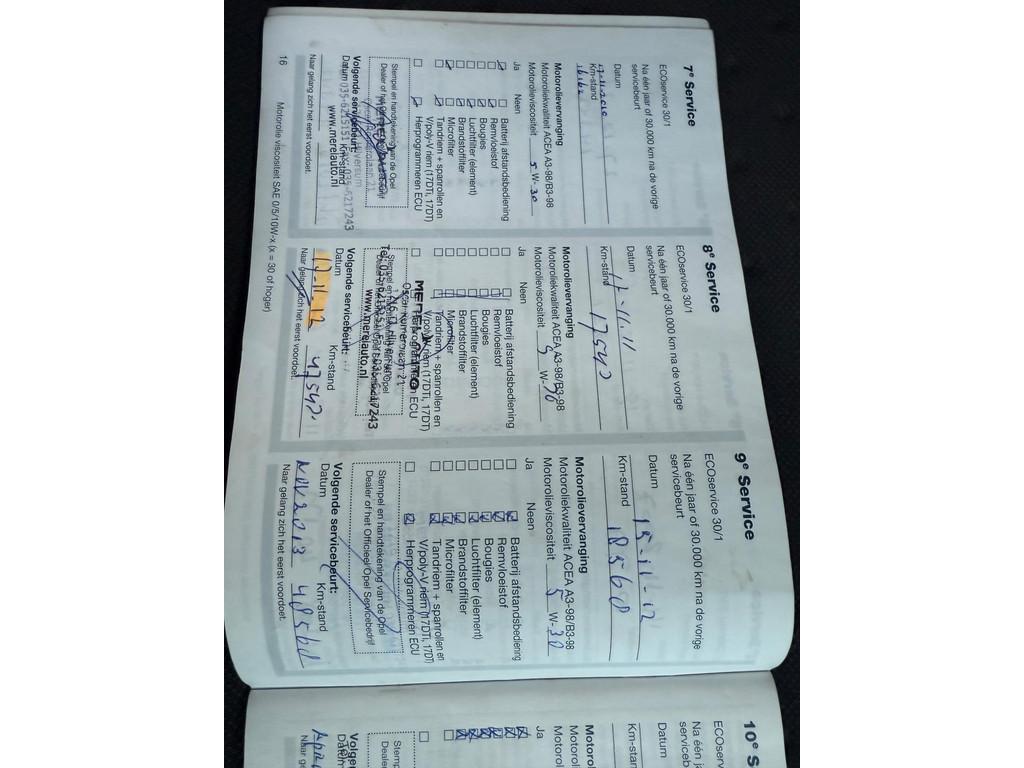 7e Service
ECOservice 30/1
Na één jaar of 30.000 km na de vorige
servicebeurt
Datum
17-11-2010
Km-stand
16162
Motorolievervanging
Motoroliekwaliteit ACEA A3-98/B3-98
Motorolieviscositeit 5 W-30
Ja Neen
Batterij afstandsbediening
Remvloeistof
Bougies
Luchtfilter (element)
Brandstoffilter
Microfilter
Tandriem + spanrollen en
V/poly-V riem (17DTI, 17DT)
Herprogrammeren ECU
Stempel en handtekening van de Opel
Volgende servicebeurt:
Datum Km-stand
035-6215151
035-6217243
www.merelauto.nl
Naar gelang zich het eerst voordoet.
16 Motorolie viscositeit SAE 0/5/10W-x (x = 30 of hoger)
8e Service
ECOservice 30/1
Na één jaar of 30.000 km na de vorige
servicebeurt
Datum 17-11-11
Km-stand 17542
Motorolievervanging
Motoroliekwaliteit ACEA A3-98/B3-98
Motorolieviscositeit 5 W-30
Ja Neen
Batterij afstandsbediening
Remvloeistof
Bougies
Luchtfilter (element)
Brandstoffilter
Microfilter
Tandriem + spanrollen en
V/poly-V riem (17DTI, 17DT)
Herprogrammeren ECU
www.merelauto.nl
Volgende servicebeurt:
Datum Km-stand
17-11-12 47542
Naar gelang zich het eerst voordoet.
9e Service
ECOservice 30/1
Na één jaar of 30.000 km na de vorige
servicebeurt
Datum 15-11-12
Km-stand 18560
Motorolievervanging
Motoroliekwaliteit ACEA A3-98/B3-98
Motorolieviscositeit 5 W-30
Ja Neen
Batterij afstandsbediening
Remvloeistof
Bougies
Luchtfilter (element)
Brandstoffilter
Microfilter
Tandriem + spanrollen en
V/poly-V riem (17DTI, 17DT)
Herprogrammeren ECU
Stempel en handtekening van de Opel
Dealer of het Officieel Opel Servicebedrijf
Volgende servicebeurt:
Datum Km-stand
Nov 2013 48560
Naar gelang zich het eerst voordoet.
10e S
ECOservi
Na één ja
servicebe
Datum
Km-stand
Motorol
Motorol
Motorol
Ja
Stemp
Dealer
Volgen
Datum
Naar ge